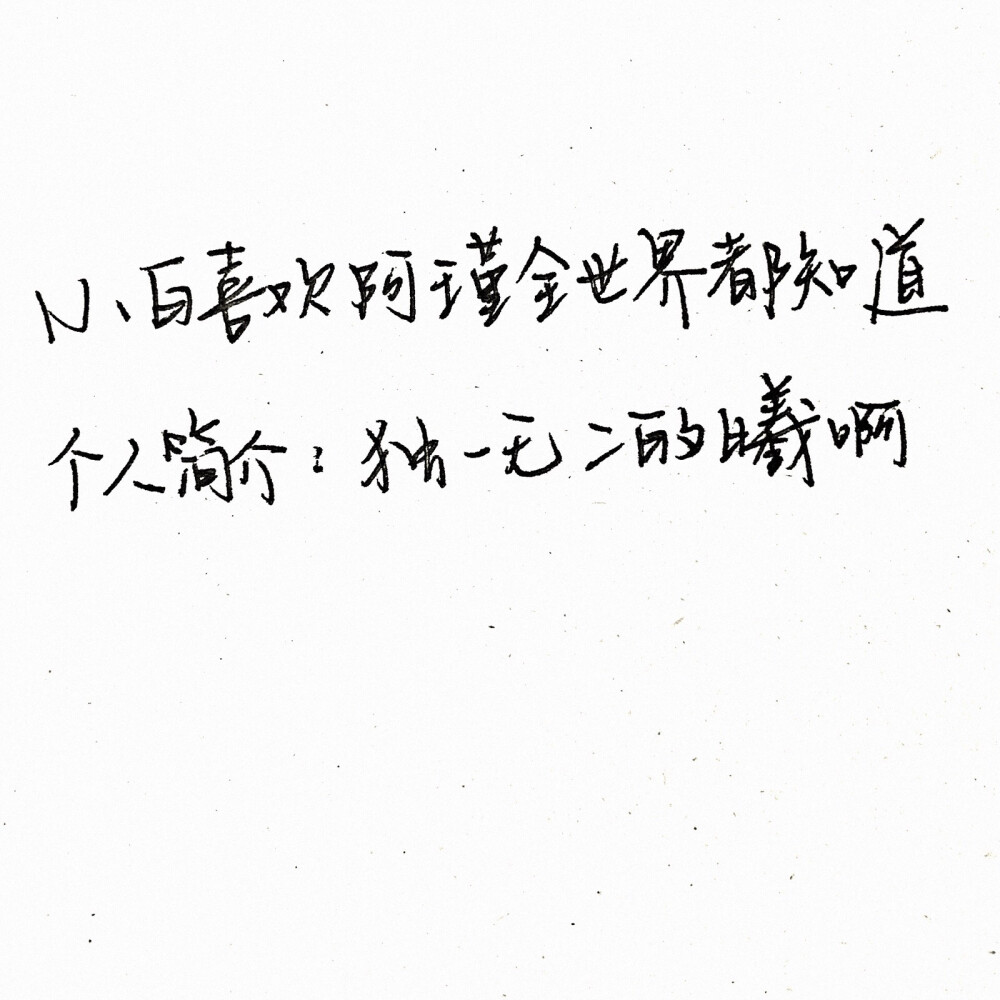 小百喜欢阿瑾全世界都知道
个人简介：独一无二的曦啊